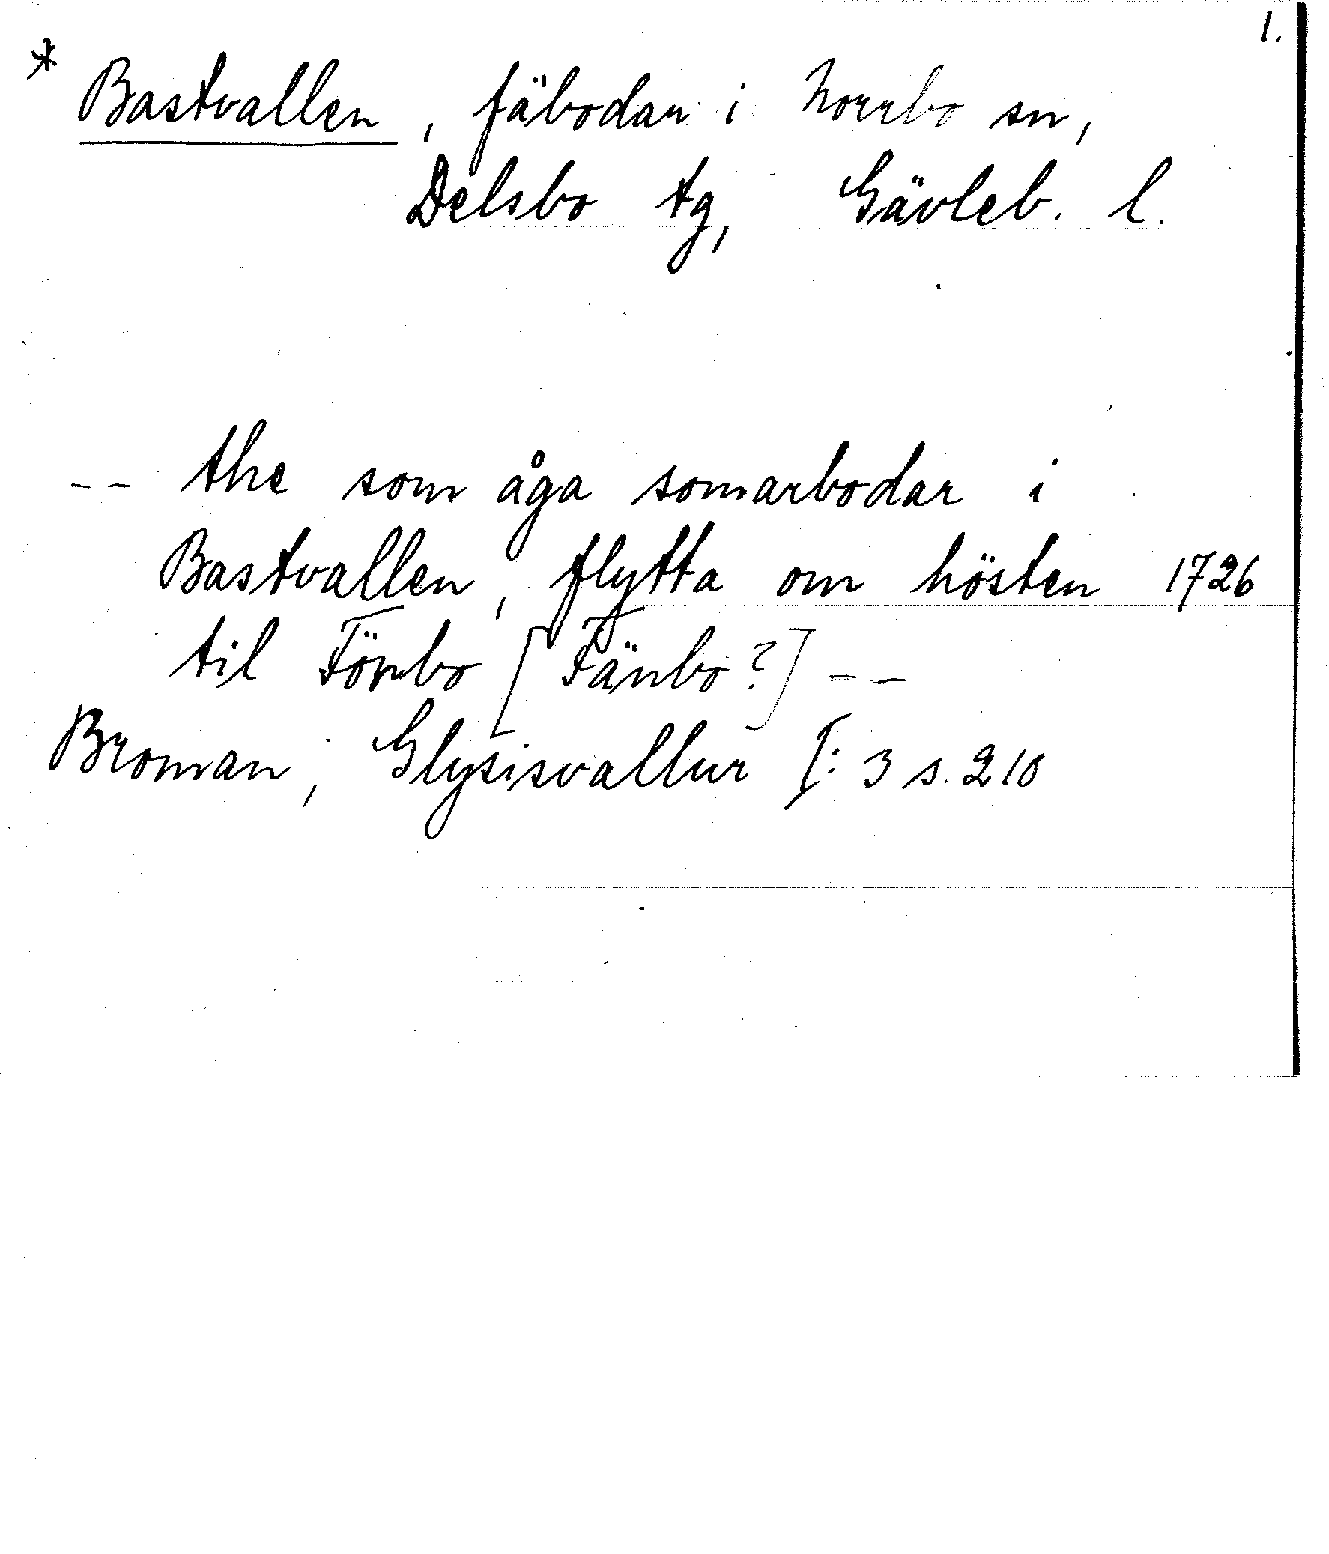 1.
* Bastvallen, fäbodar i Norrbo sn,
Delsbo tg, Gävleb. l.
-- the som åga somarbodar i
Bastvallen, flytta om hösten 1726
til Fönbo [Fänbo?] --
Broman, Glysisvallur I: 3 s. 210